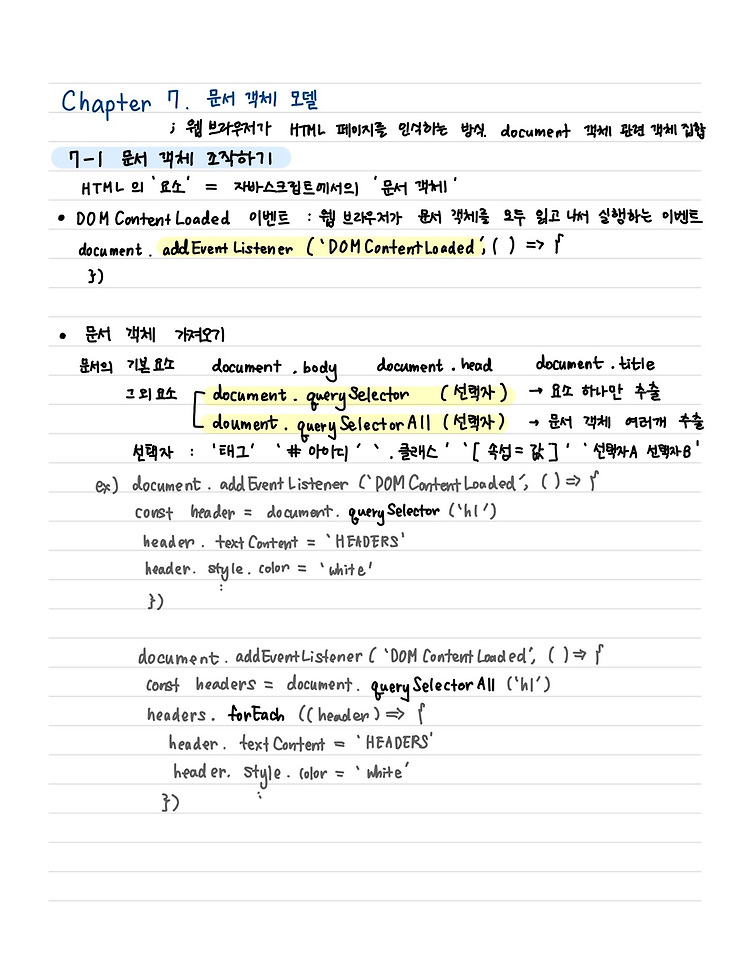 Chapter 7. 문서 객체 모델
; 웹 브라우저가 HTML 페이지를 인식하는 방식. document 객체 관련 객체 집합
7-1 문서 객체 조작하기
HTML 의 '요소' = 자바스크립트에서의 '문서 객체'
• DOM Content Loaded 이벤트 : 웹 브라우저가 문서 객체를 모두 읽고 나서 실행하는 이벤트
document . addEvent Listener ( 'DOM Content Loaded', ( ) => {
})
• 문서 객체 가져오기
문서의 기본 요소 document . body document . head document . title
그 외 요소 document . query Selector ( 선택자 ) → 요소 하나만 추출
doument . query Selector All ( 선택자 ) → 문서 객체 여러개 추출
선택자 : '태그' '# 아이디' ' . 클래스' '[ 속성 = 값 ]' '선택자A 선택자B'
ex) document . addEvent Listener ( 'DOM Content Loaded', ( ) => {
const header = document. query Selector ('h1')
header . text Content = 'HEADERS'
header. style . color = 'white'
:
})
document . addEvent Listener ( 'DOM Content Loaded', ( ) => {
const headers = document . query Selector All ('h1')
headers . forEach ((header) => {
header . text Content = 'HEADERS'
header. style . color = 'white'
:
})